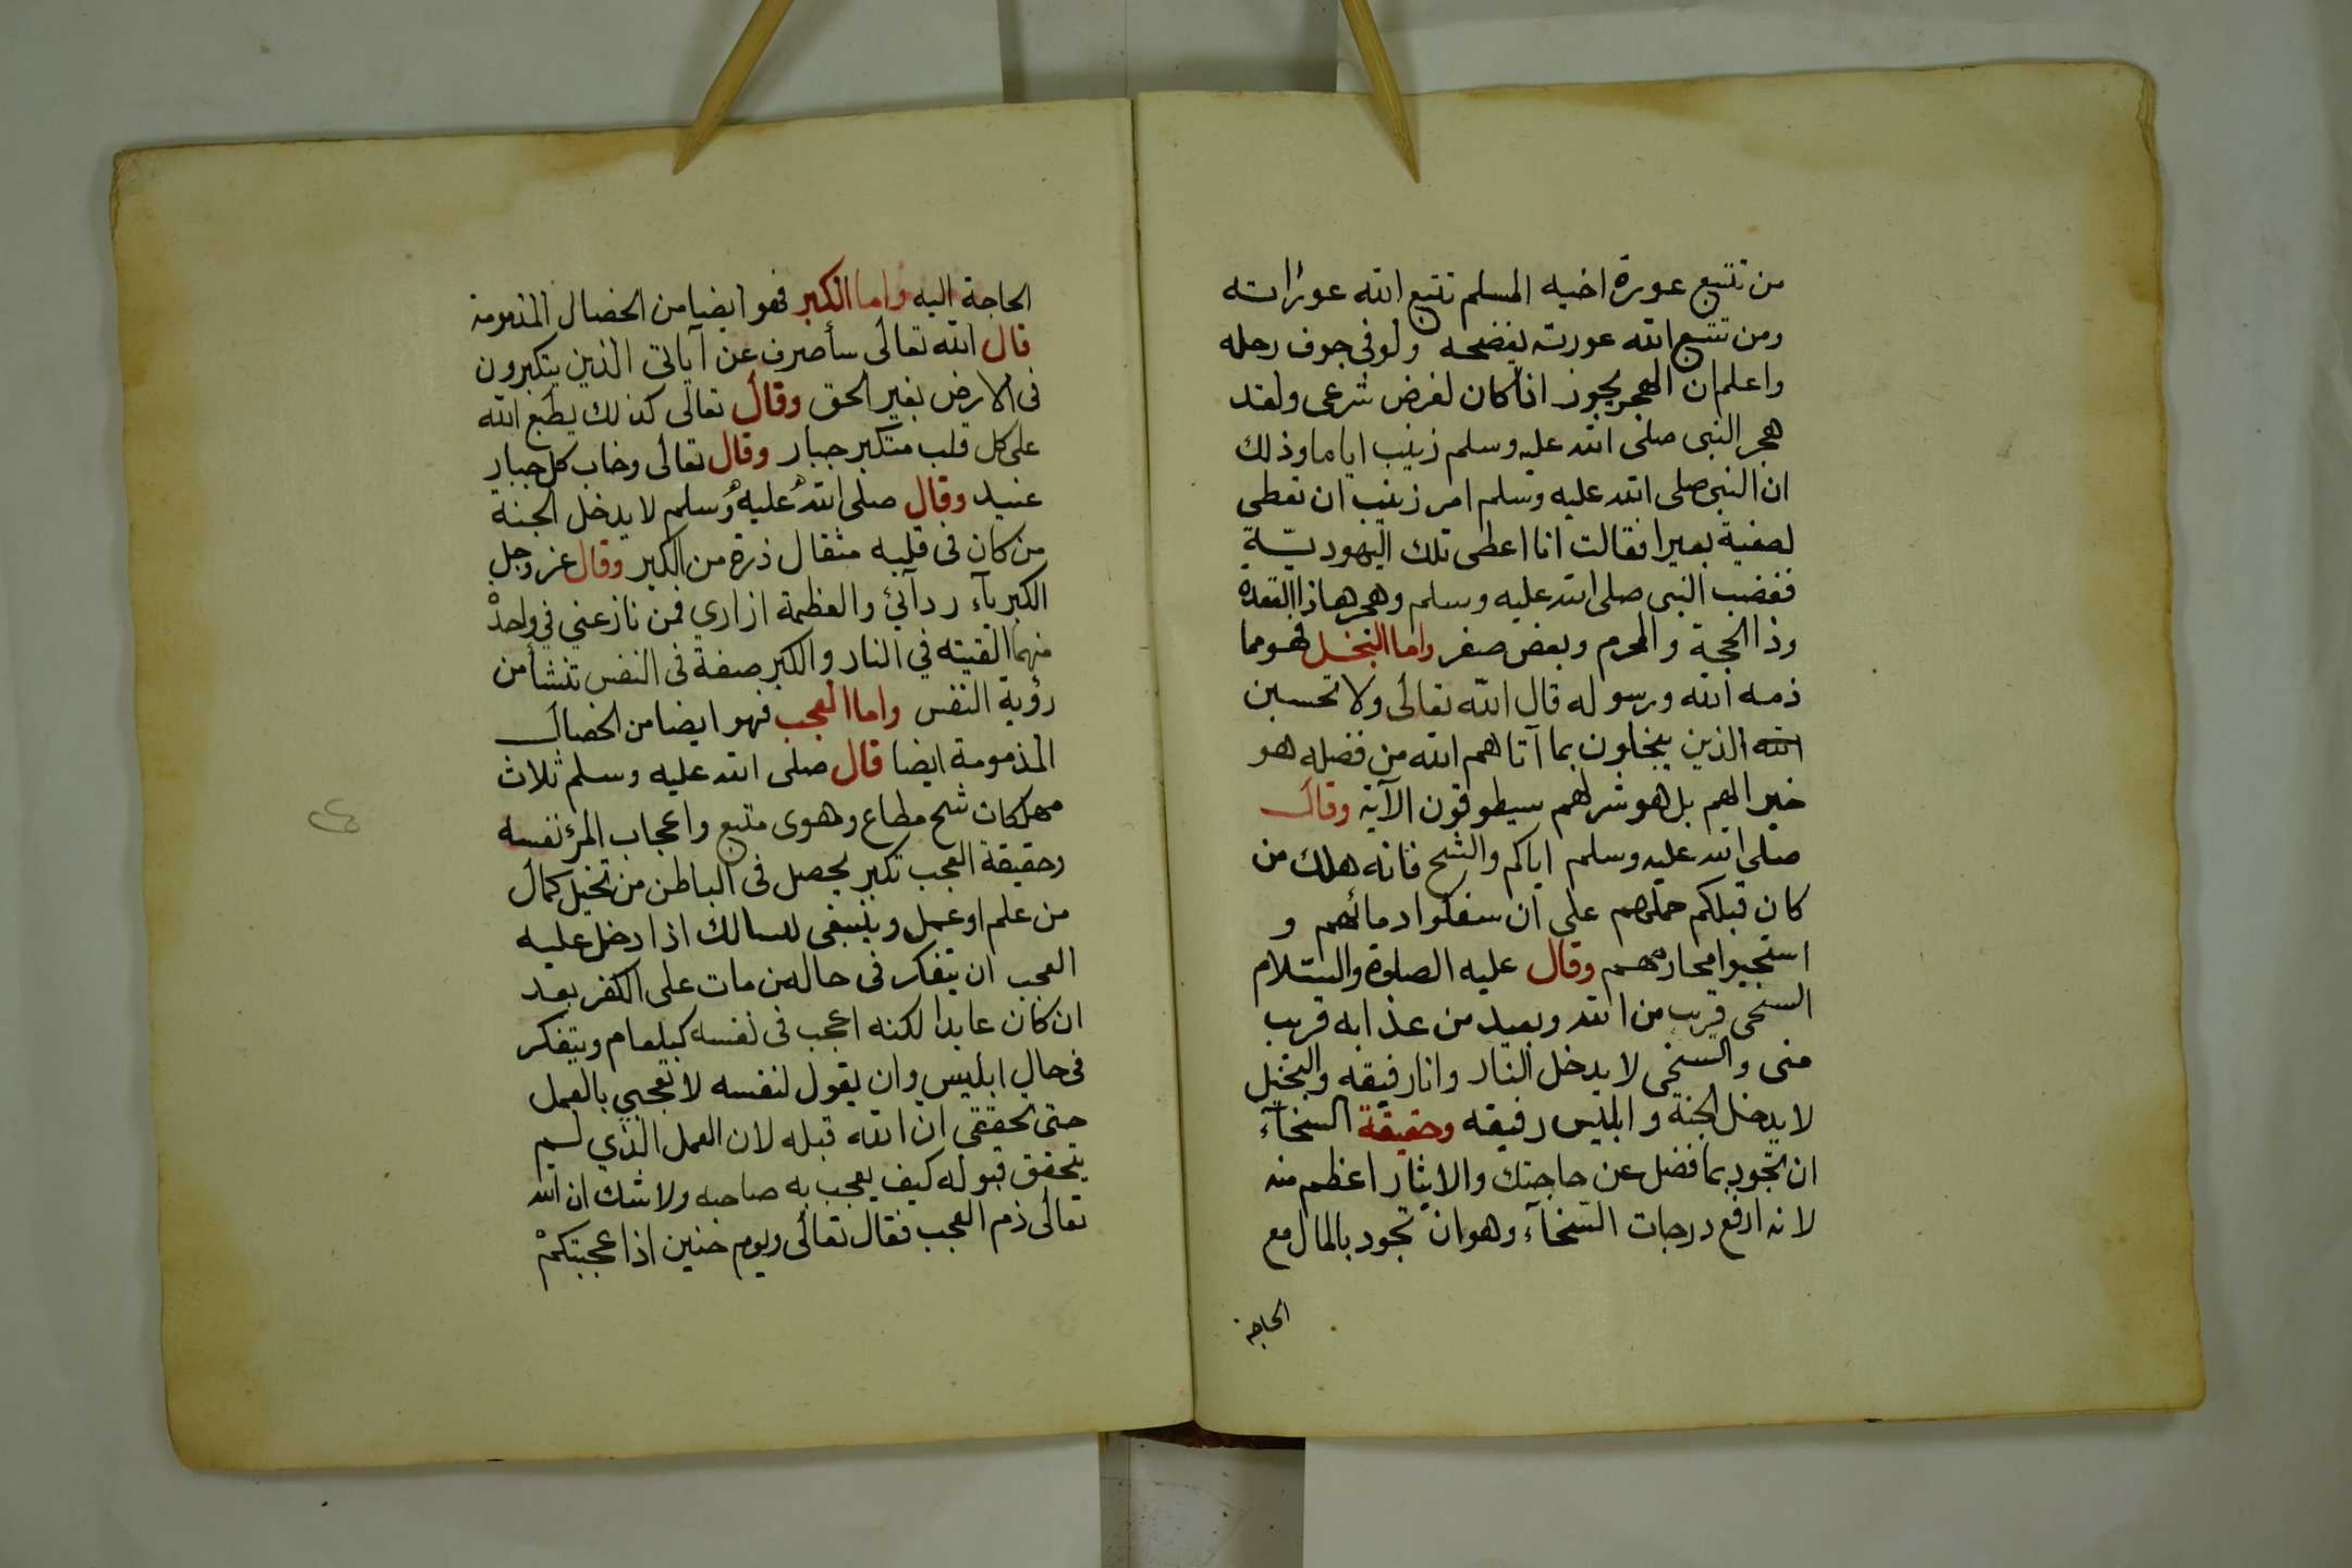 من تتبع عورة اخيه المسلم تتبع الله عوراته
ومن تتبع الله عورته يفضحه ولو في جوف رحله
واعلم ان الهجر يجوز اذا كان لغرض شرعى ولقد
هجر النبى صلى الله عليه وسلم زينب اياما وذلك
ان النبى صلى الله عليه وسلم امر زينب ان تعطى
لصفية بعيرا فقالت انا اعطى تلك اليهوديّة
فغضب النبى صلى الله عليه وسلم وهجرها ذا القعدة
وذا الحجة والمحرم وبعض صفر واما البخل فهو مما
ذمه الله ورسوله قال الله تعالى ولا تحسبن
الله الذين يبخلون بما آتاهم الله من فضله هو
خيرا لهم بل هو شر لهم سيطوقون الآية وقال
صلى الله عليه وسلم اياكم والشح فانه هلك من
كان قبلكم حملهم على ان سفكوا دمائهم و
استحيوا محارمهم وقال عليه الصلوة والسّلام
السخى قريب من الله وبعيد من عذابه قريب
منى والسخى لا يدخل النار وانا رفيقه والبخيل
لا يدخل الجنة وابليس رفيقه وحقيقة السخآء
ان تجود بما فضل عن حاجتك والايثار اعظم منه
لانه ارفع درجات السّخآء وهو ان تجود بالمال مع
الحاجة
الحاجة اليه واما الكبر فهو ايضا من الخصال المذمومة
قال الله تعالى سأصرف عن آياتى الذين يتكبرون
فى الارض بغير الحق وقال تعالى كذلك يطبع الله
على كل قلب متكبر جبار وقال تعالى وخاب كل جبار
عنيد وقال صلى الله عليه وسلم لا يدخل الجنة
من كان فى قلبه مثقال ذرة من الكبر وقال عز وجل
الكبريآء ردآئي والعظمة ازاري فمن نازعني في واحد
منهما القيته في النار والكبر صفة فى النفس تنشأ من
رؤية النفس واما العجب فهو ايضا من الخصال
المذمومة ايضا قال صلى الله عليه وسلم ثلاث
مهلكات شح مطاع وهوى متبع واعجاب المرء نفسه
وحقيقة العجب تكبر يحصل فى الباطن من تخيل كمال
من علم او عمل وينبغى للسالك اذا دخل عليه
العجب ان يتفكر فى حال من مات على الكفر بعد
ان كان عابدا لكنه اعجب فى نفسه كبلعام ويتفكر
فى حال ابليس وان يقول لنفسه لا تعجبي بالعمل
حتى تحققى ان الله قبله لان العمل الذي لم
يتحقق قبوله كيف يعجب به صاحبه ولا شك ان الله
تعالى ذم العجب فقال تعالى ويوم حنين اذا عجبتكم